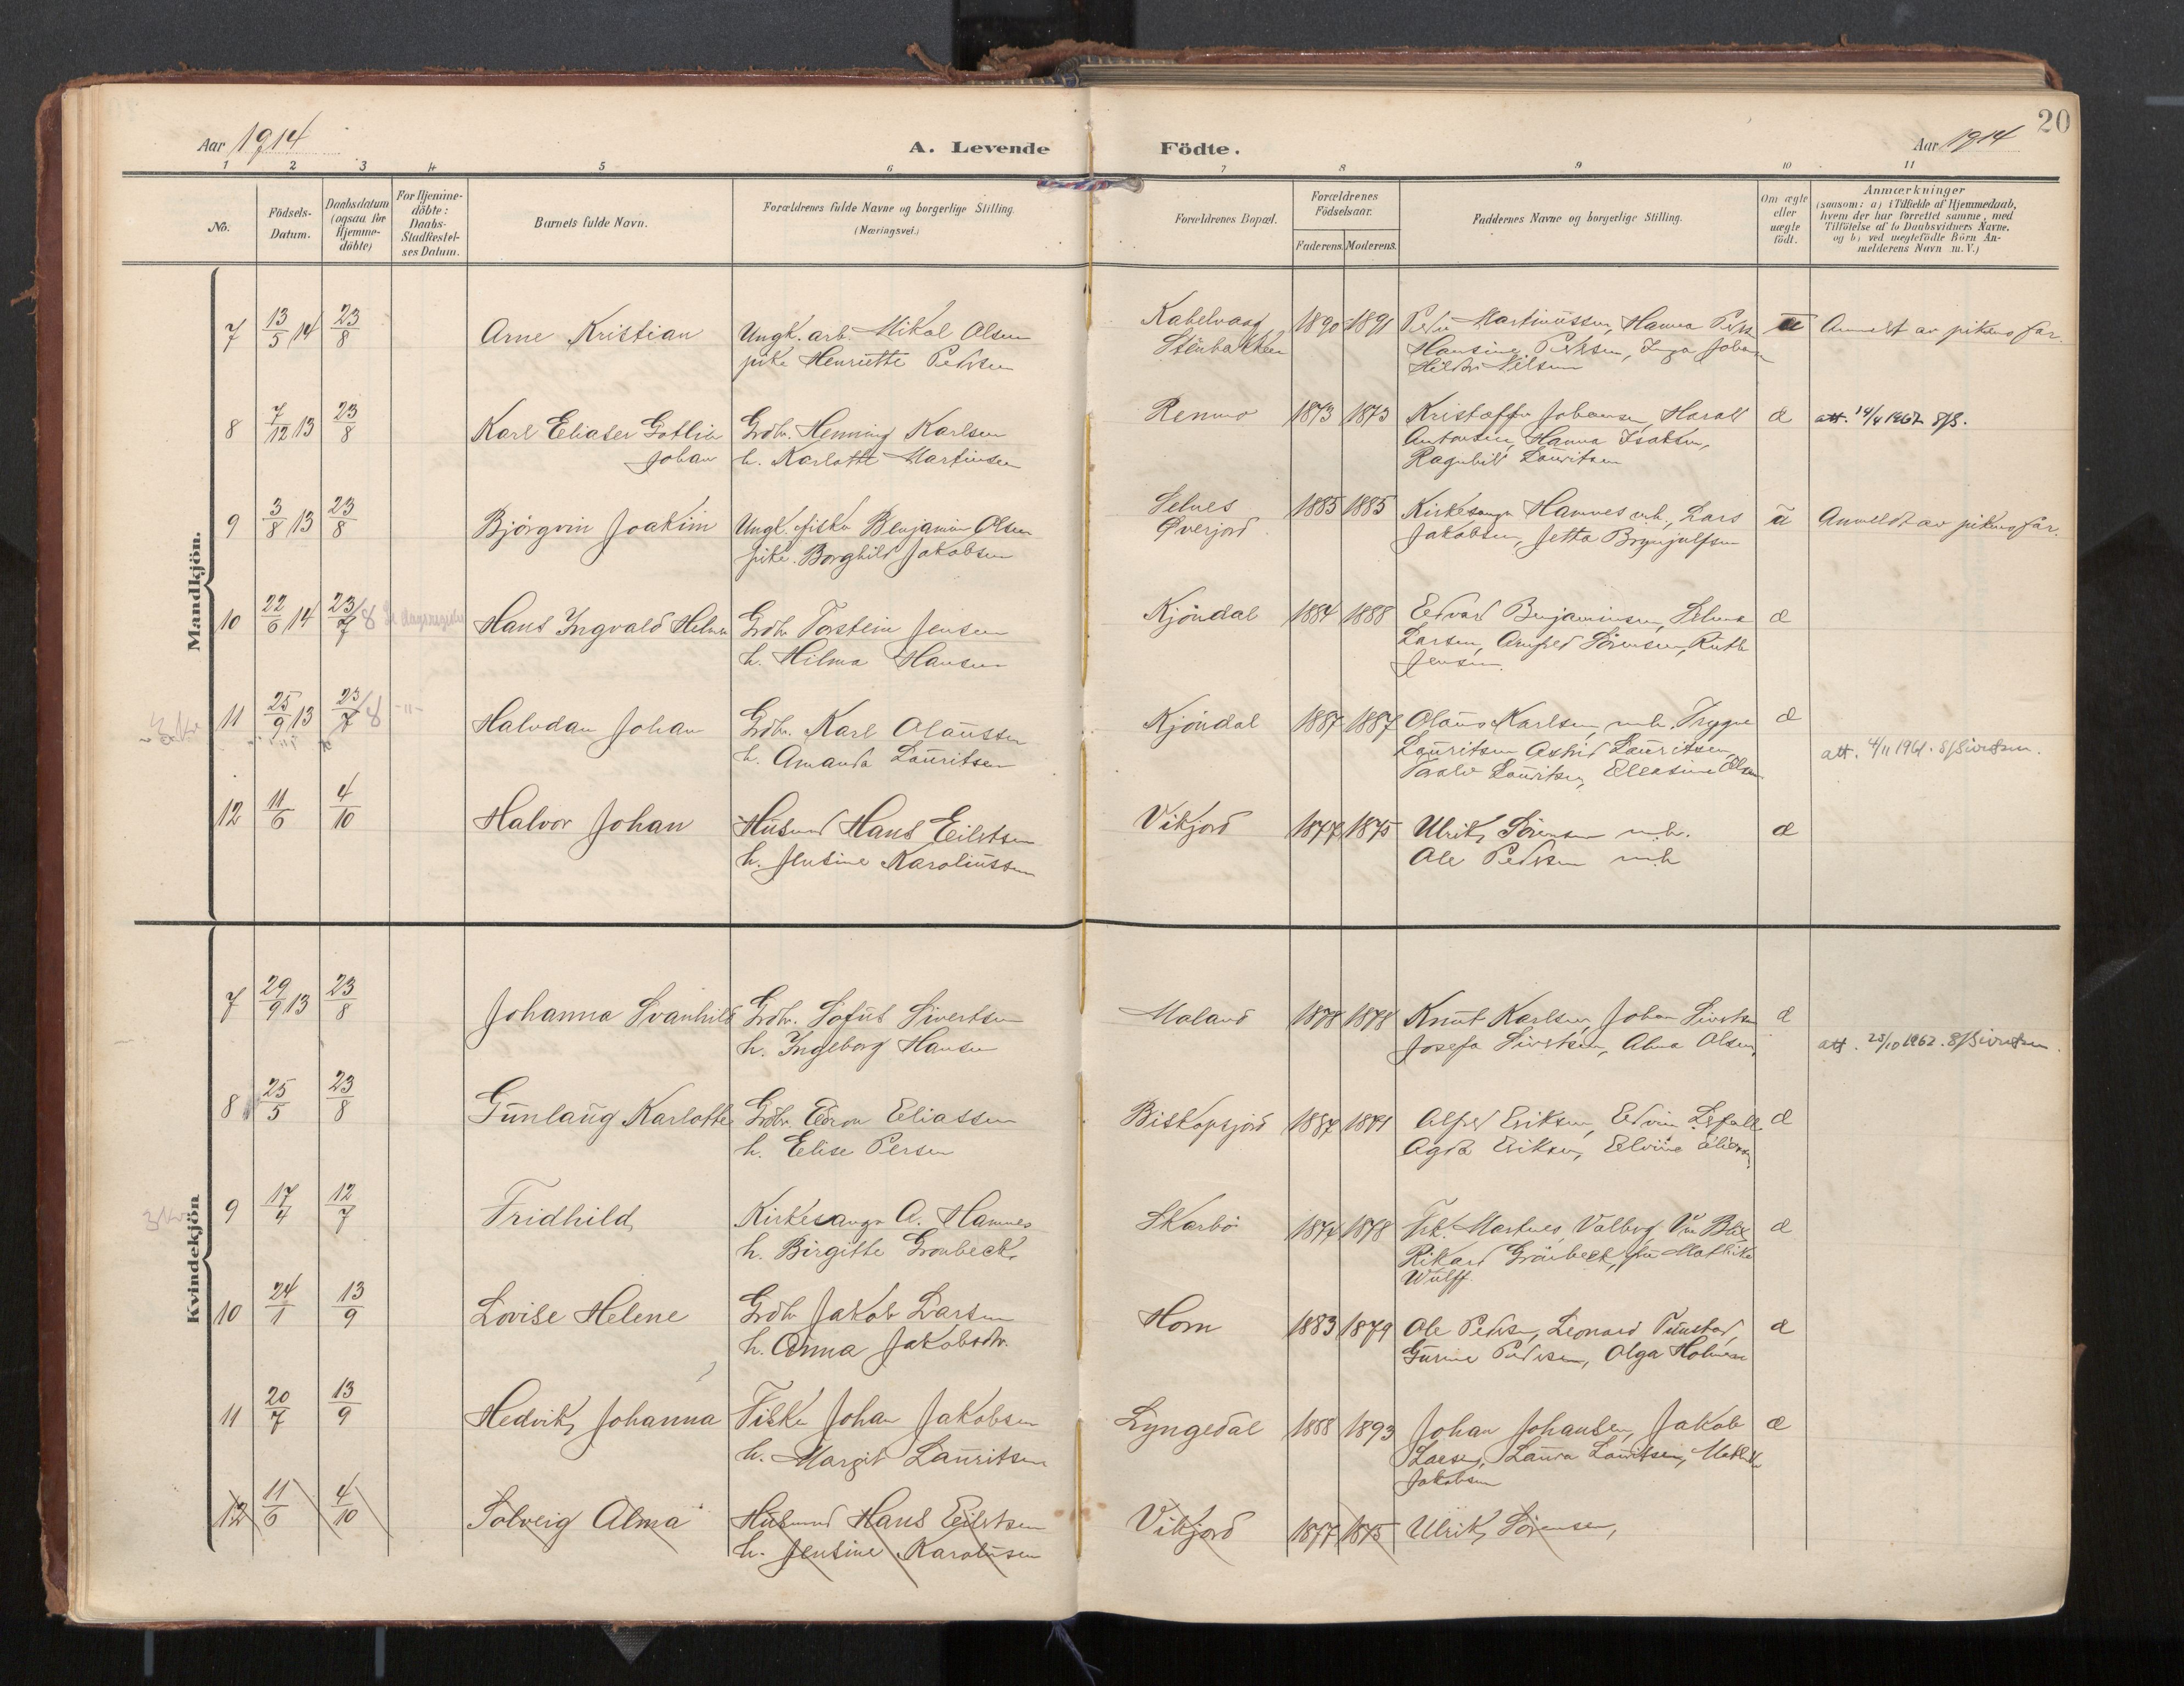 20
Aar 1914
A. Levende Födte.
Aar 1914
1 2 3 4 5 6 7 8 9 10 11
No.
Födsels-
Datum.
Daabsdatum
(ogsaa for
Hjemme-
döbte)
For Hjemme-
döbte:
Daabs-
Stadfæstel-
ses Datum.
Barnets fulde Navn.
Forældrenes fulde Navne og borgerlige Stilling.
(Næringsvei.)
Forældrenes Bopæl.
Forældrenes
Födselsaar.
Faderens. Moderens.
Faddernes Navne og borgerlige Stilling.
Om ægte
eller
uægte
födt.
Anmærkninger
(saasom: a) i Tilfælde af Hjemmedaab,
hvem der har forrettet samme, med
Tilföielse af to Daabsvidners Navne,
og b) ved uægtefödte Börn An-
melderens Navn m. V.)
Mandkjön.
7 13/5 14 23/8 Arne Kristian Ungk. arb. Mikal Olsen Kabelvaag 1890 1891 Peder Martinussen, Hanna Peders. u Anmeldt av pikens far.
pike Henriette Pedersen Stenbakken Hansine Pedersen, Inga Johan
Nilsen
8 7/12 13 23/8 Karl Eliaser Gotlieb Grdbr. Henning Karlsen Renmo 1873 1873 Kristoffer Johansen, Harald æ att. 14/4 1967 SfS.
Johan h. Karlotte Martinsen Antonsen, Hanna Isaksen,
Ragnhild Lauritsen
9 3/8 13 23/8 Björgvin Joakim Ungk. fisker Benjamin Olsen Selnes 1885 1885 Kirkesanger Hamnes m.h., Lars u Anmeldt av pikens far.
pike. Borghild Jakobsen Øverjord Jakobsen, Jetta Brynjulfsen
10 22/6 14 23/7 8 Hans Ingvald Helmer Grdbr Torstein Jensen Kjöndal 1884 1888 Edvard Benjaminsen, Selma æ
h. Hilma Hansen Larsen, Arnfred Sörensen, Ruth
Jensen.
11 25/9 13 23/7 8 -"- Halvdan Johan Grdbr. Karl Olaussen Kjöndal 1887 1887 Olaus Karlsen m.h. Trygve æ
h. Amanda Lauritsen Lauritsen Astrid Lauritsen, att. 4/11 1961. S/Sivertsen.
Lauritsen, Eleasine Olsen
12 11/6 4/10 Halvor Johan Husmd Hans Eilertsen Vikjord 1877 1875 Ulrik Sörensen m.h. æ
h. Jensine Karoliussen Ole Pedersen m.h
Kvindekjön
7 29/9 13 23/8 Johanna Svanhild Grdbr. Sofus Sivertsen Maland 1878 1878 Knut Karlsen, Johan Sivertsen æ
h. Ingeborg Hansen Josefa Sivertsen, Alma Olsen, att. 25/10 1962. S/Sivertsen.
8 25/5 23/8 Gunlaug Karlotte Grdbr. Edron Eliassen Biskopsjord 1887 1891 Alfred Eriksen, Edvin æ
h. Elise Persen Agda Eriksen, Elvine Eliassen
9 17/4 12/7 Fridhild Kirkesanger A. Hamnes Skarbö 1874 1878 Frk. Martnes, Valborg æ
h. Birgitte Grönbeck Rikard Grönbeck, fru Mathilde
Wulff.
10 24/1 13/9 Lovise Helene Grdbr Jakob Larsen Horn 1883 1879 Ole Pedersen, Leonard Finstad, æ
h. Anna Jakobsdtr. Gurine Pedersen, Olga Holmen
11 20/7 13/9 Hedvik Johanna Fisker Johan Jakobsen Lyngedal 1888 1893 Johan Johansen, Jakob æ
h. Margit Lauritsen Larsen, Laura Lauritsen,
Jakobsen
12 11/6 4/10 Solveig Alma Husmd Hans Eilertsen Vikjord 1877 1875 Ulrik Sörensen,
h. Jensine Karoliusen